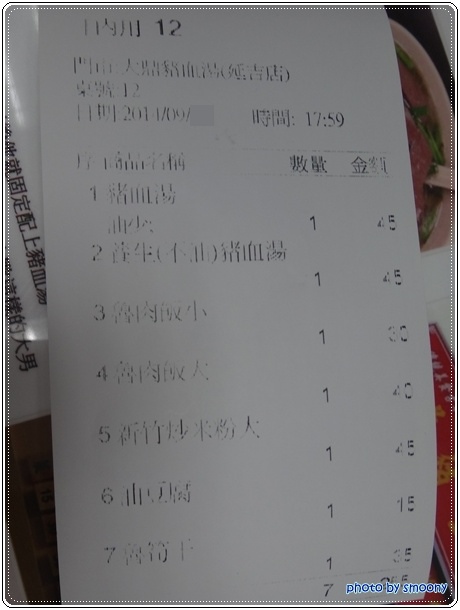 內用 12
門市: 大鼎豬血湯(延吉店)
桌號:12
日期:2014/09/ 時間: 17:59
序 商品名稱 數量 金額
1 豬血湯
油少 1 45
2 養生(不油)豬血湯
1 45
3 魯肉飯小
1 30
4 魯肉飯大
1 40
5 新竹炒米粉大
1 45
6 油豆腐
1 15
7 魯筍干
1 35
7 255
就固定配上豬血湯
的大男
photo by smoony